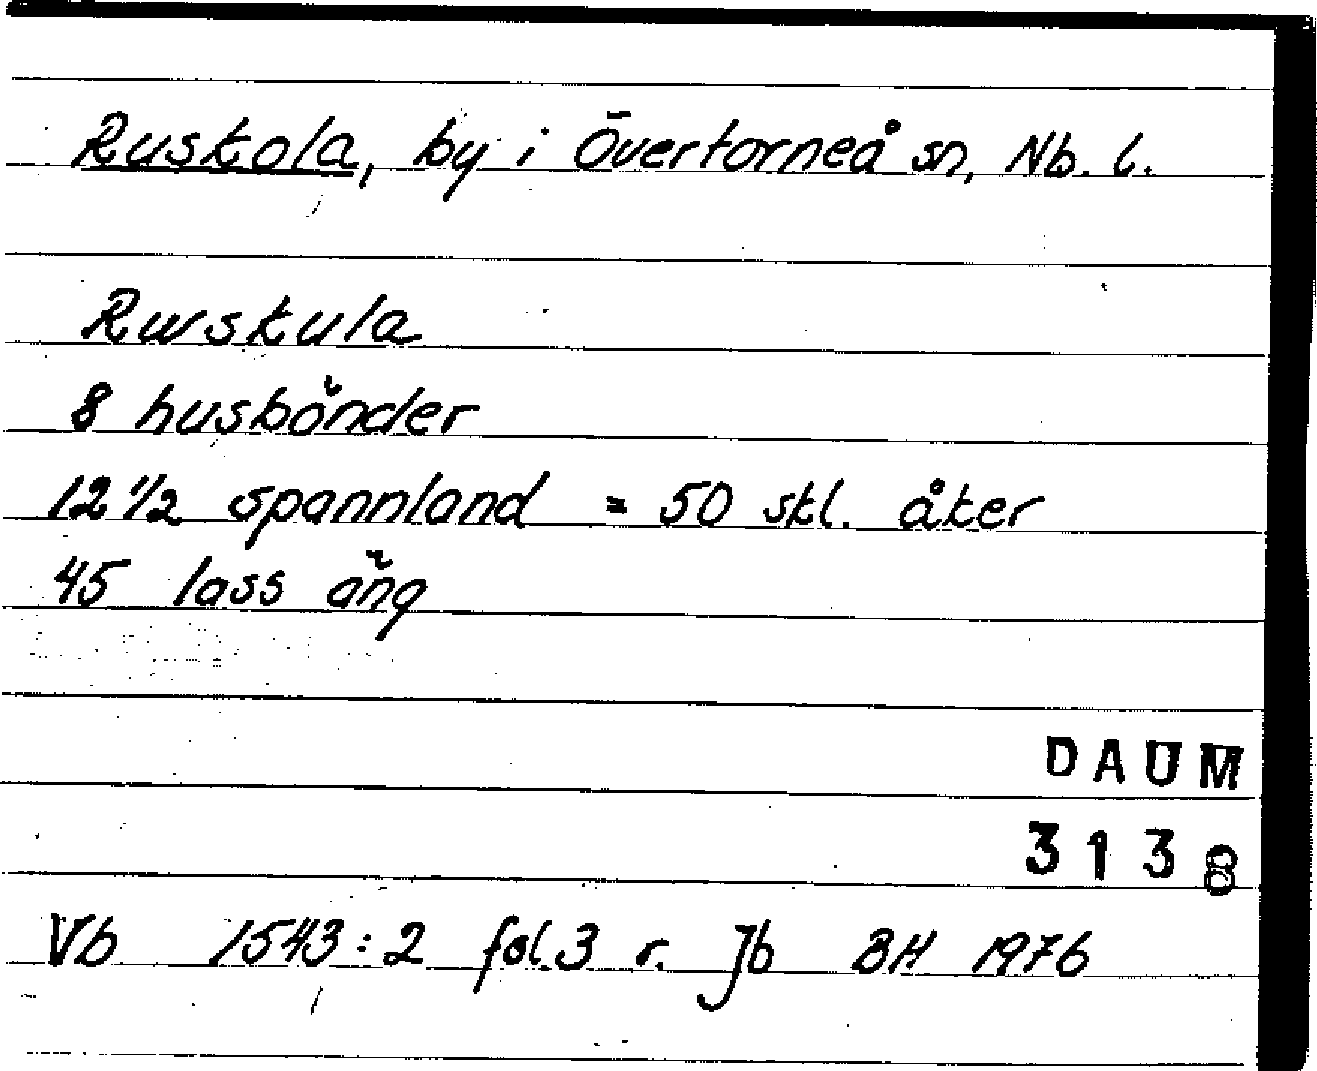 Ruskola, by i Övertorneå sn, Nb. l.
Rwskula
8 husbönder
12 1/2 spannland = 50 skl. åker
45 lass äng
DAUM
3138
Vb 1543:2 fol.3 r. Jb BH 1976